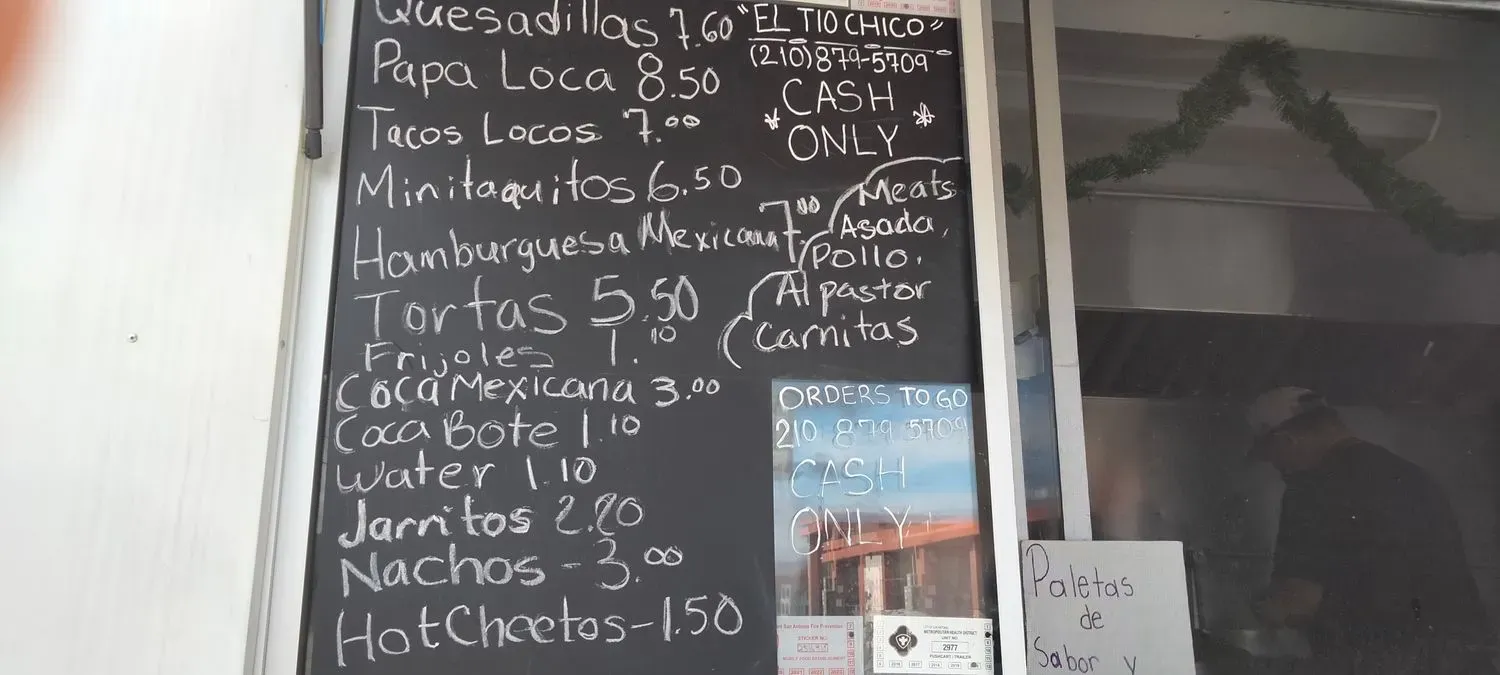 Quesadillas 7.60
Papa Loca 8.50
Tacos Locos 7.00
Minitaquitos 6.50
Hamburguesa Mexicana 7.00
Tortas 5.50
Frijoles 1.10
Coca Mexicana 3.00
Coca Bote 1.10
Water 1.10
Jarritos 2.20
Nachos - 3.00
Hot Cheetos - 1.50
"EL TIO CHICO"
(210) 879-5709
CASH
* ONLY *
Meats
Asada,
Pollo.
Al pastor
Carnitas
ORDERS TO GO
210 879 5709
CASH
ONLY
San Antonio Fire Prevention
STICKER NO.
MOBILE FOOD ESTABLISHMENT
METROPOLITAN HEALTH DISTRICT
UNIT NO.
2977
PUSHCART / TRAILER
Paletas
de
Sabor y